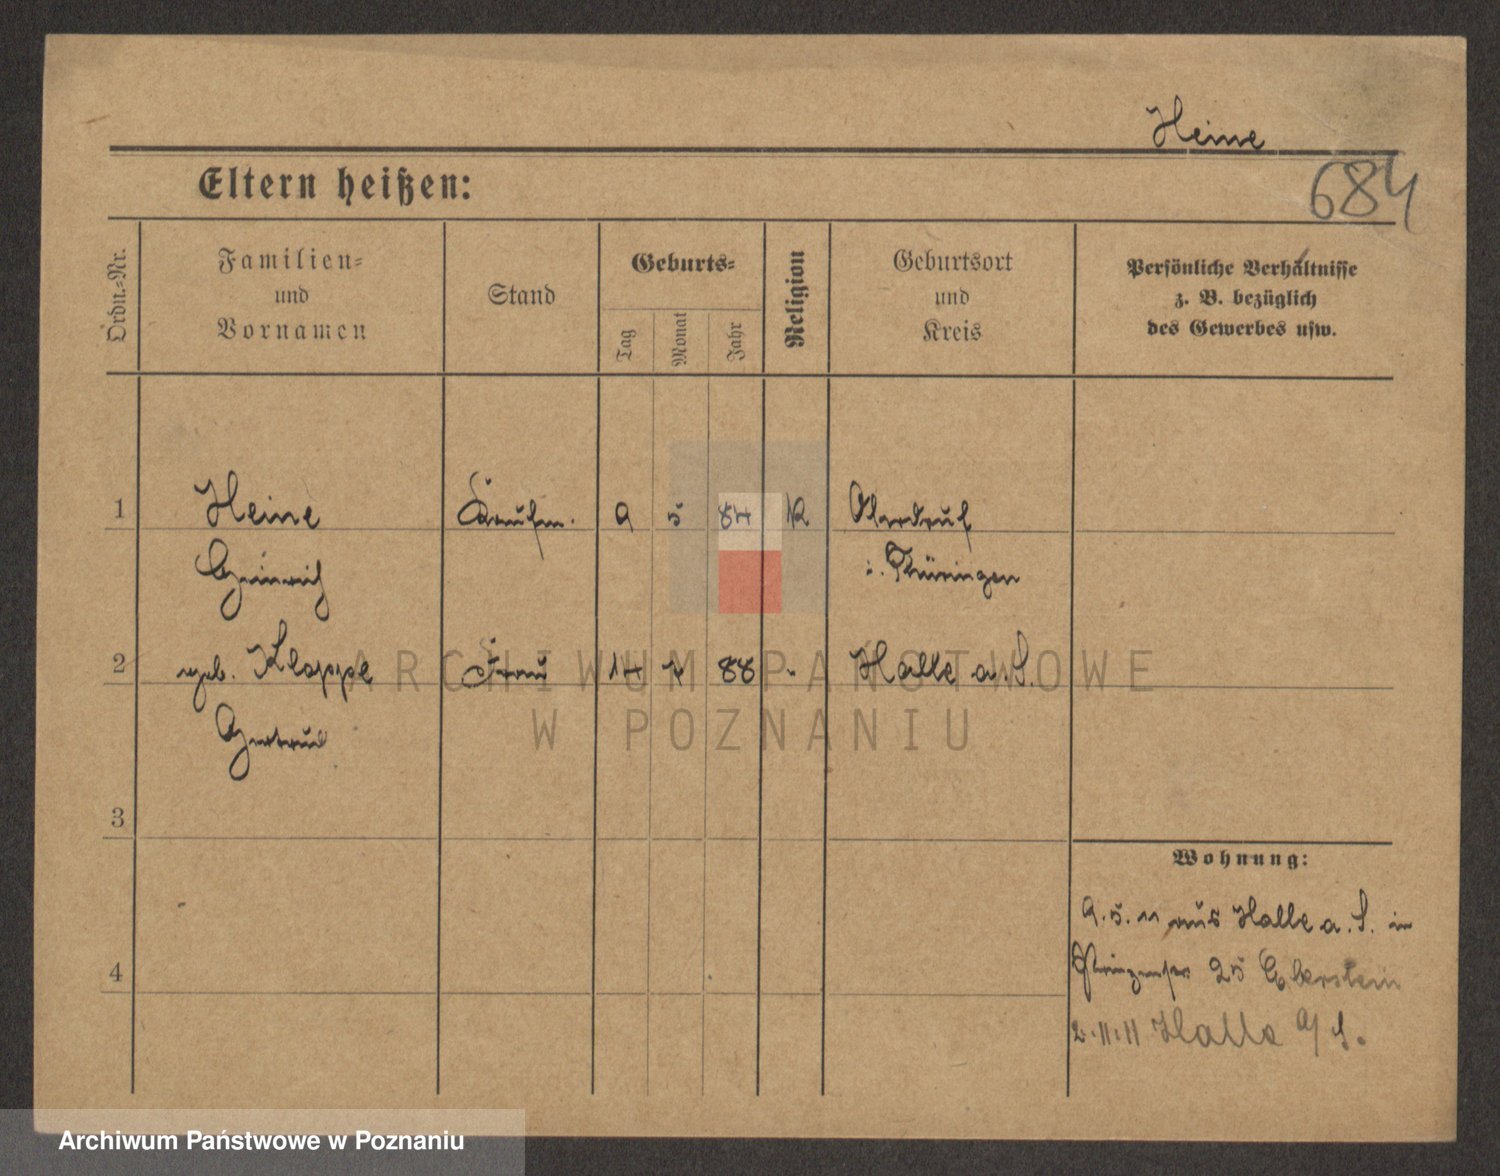 Heine
684
Eltern heißen:
Ordn.-Nr.
Familien-
und
Vornamen
Stand
Geburts-
Tag
Monat
Jahr
Religion
Geburtsort
und
Kreis
Persönliche Verhältnisse
z. B. bezüglich
des Gewerbes usw.
1
Heine
Heinrich
Kaufm.
9
5
84
Ohrdruf
i. Thüringen
2
geb. Kloppe
Gertrud
Frau
14
7
88
"
Halle a. S.
3
4
Wohnung:
9.5.11 aus Halle a. S. in
Prinzenstr. 25 Eberstein
2.11.11 Halle a/S.
ARCHIWUM PAŃSTWOWE
W POZNANIU
Archiwum Państwowe w Poznaniu